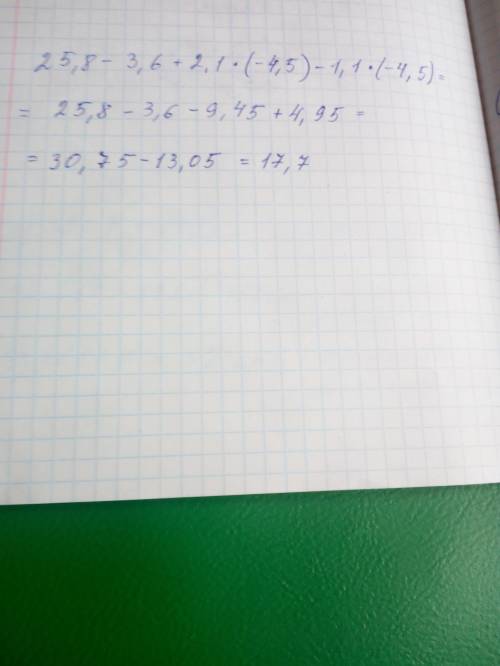 25,8 - 3,6 + 2,1 · (-4,5) - 1,1 · (-4,5) =
= 25,8 - 3,6 - 9,45 + 4,95 =
= 30,75 - 13,05 = 17,7